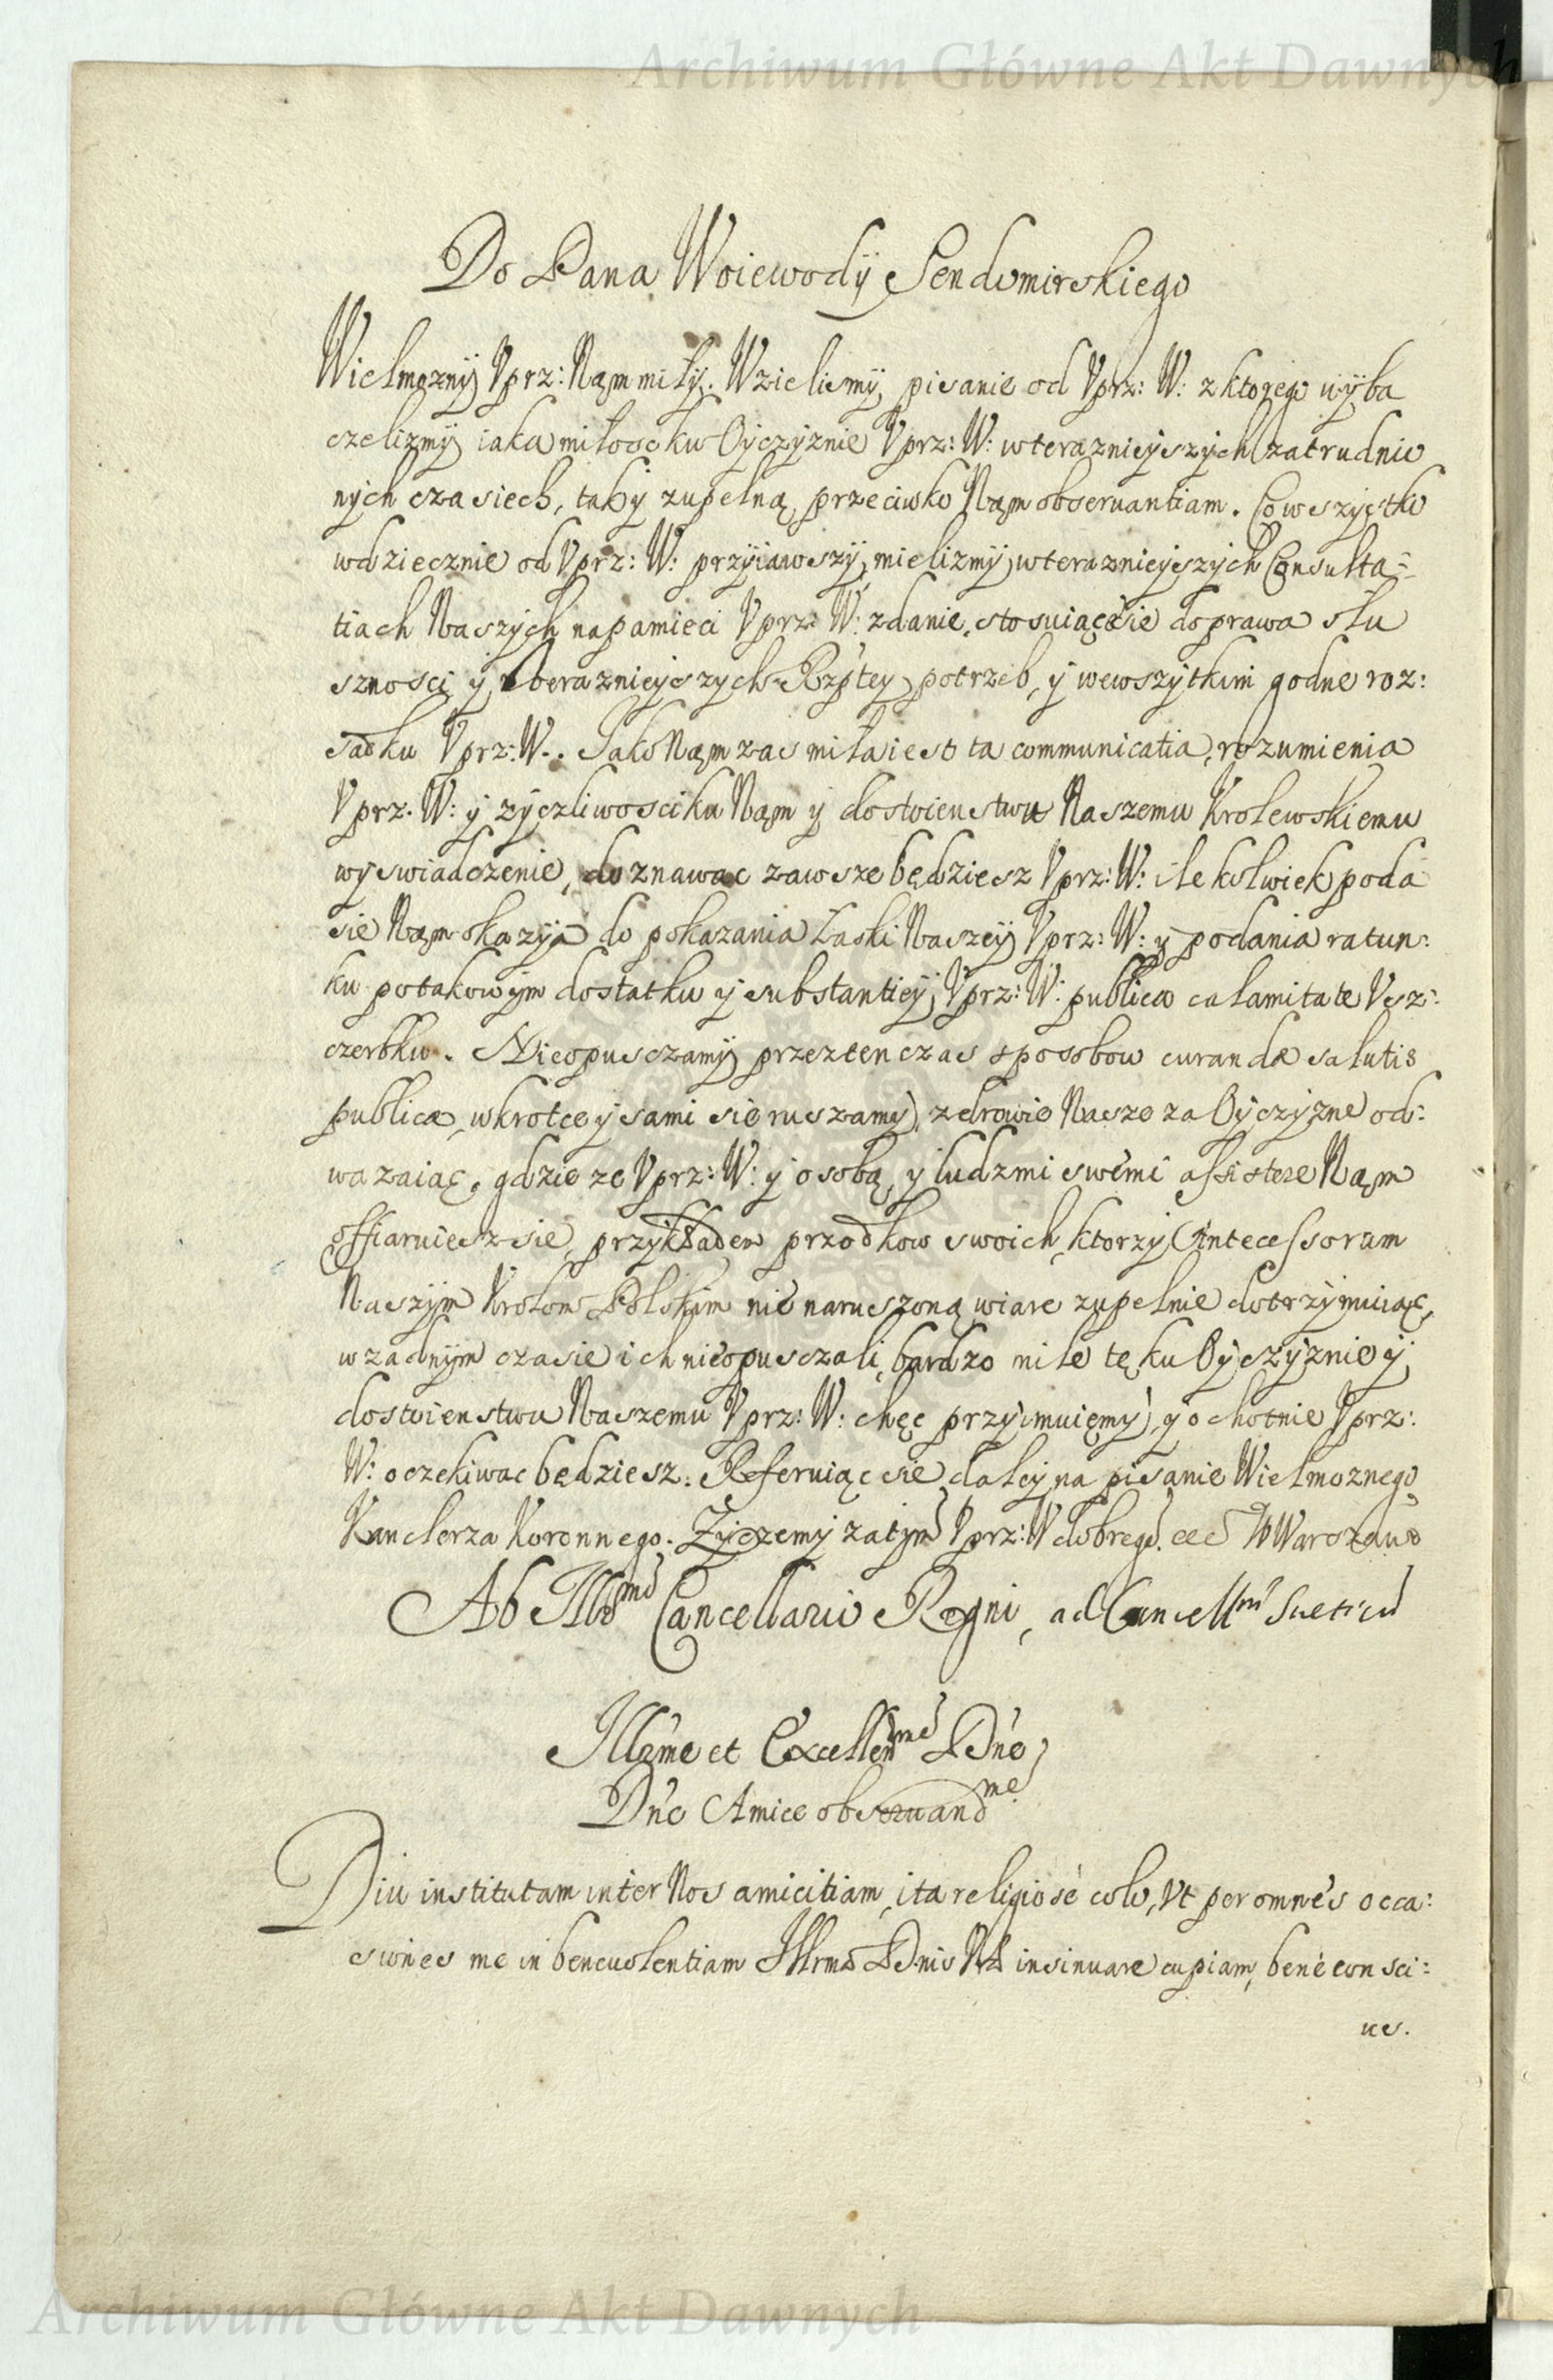 Archiwum Główne Akt Dawnych
Do Pana Woiewodÿ Sendomirskiego
Wielmoznÿ Vprz: Nąm miłÿ. Wzielismÿ pisanie od Vprz: W: z ktorego wÿba
czelizmÿ iaka miłosc ku Oÿczÿznie Vprz: W: w teraznieÿszÿch zatrudnio
nÿch czasiech, tak ÿ zupełną przeciwko Nąm obseruantiam. Co wszÿstko
wdziecznie od Vprz: W: przÿiąwszÿ, mielizmÿ w teraznieÿszÿch Consulta-
tiach Naszÿch na pamieci Vprz: W: zdanie, stosuiącesie do prawa słu
sznosci ÿ teraznieÿszÿch Rzptey potrzeb, ÿ we wszÿtkim godne roz:
sadku Vprz: W. Jako Nąm zas miła iest ta communicatia, rozumienia
Vprz. W: ÿ zÿczliwosci ku Nąm ÿ dostoienstwu Naszemu Krolewskiemu
wÿswiadczenie, doznawac zawsze będziesz Vprz: W: ile kolwiek poda
sie Nąm okazÿa do pokazania łaski Naszeÿ Vprz: W: ÿ podania ratun:
ku po takowÿm dostatku ÿ substantieÿ Vprz: W: publica calamitate Vsz:
czerbku. Nieopusczamÿ przez ten czas sposobow curandæ salutis
publicæ, wkrotce ÿ sami sie ruszamÿ, zdrowie Nasze za Oÿczÿzne od:
wazaiąc, gdzie ze Vprz: W: ÿ osobą ÿ ludzmi swemi assistere Nąm
offiaruiesz sie, przÿkładem przodkow swoich, ktorzÿ Antecessorum
Naszÿm Krolom Polskim nie naruszoną wiare zupełnie dotrzÿmuiąc,
w zadnÿm czasie ich nieopusczali, bardzo mile tę ku Oÿczÿznie ÿ
dostoienstwu Naszemu Vprz: W: chęc przÿimuięmÿ, ÿ ochotnie Vprz:
W: oczekiwac będziesz. Referuiąc sie daleÿ na pisanie Wielmoznego
Kanclerza Koronnego. Zÿczemÿ zatÿm Vprz: W dobrego. etc W Warszaw
Ab Illmo Cancellario Regni, ad Cancellm Suetici
Illme et Excellenme Dne,
Dne Amice obseruandme
Diu institutam inter Nos amicitiam, ita religiosè colo, Vt per omnes occa:
siones me in beneuolentiam Illrmæ Dnis Vræ insinuare cupiam, benè consci:
us.
Archiwum Główne Akt Dawnych